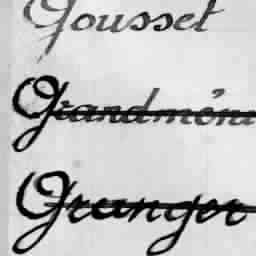 Gousset
Grandmont
Granger